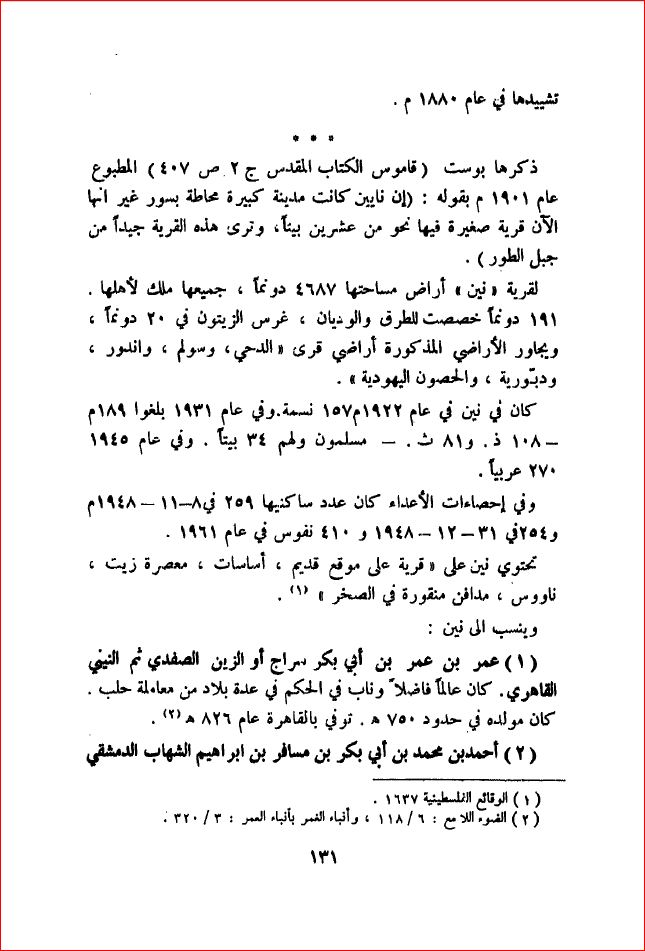 تشييدها في عام ١٨٨٠ م .
* * *
ذكرها بوست ( قاموس الكتاب المقدس ج ٢ ص ٤٠٧ ) المطبوع
عام ١٩٠١ م بقوله : ( إن نايين كانت مدينة كبيرة محاطة بسور غير انها
الآن قرية صغيرة فيها نحو من عشرين بيتاً ، وترى هذه القرية جيداً من
جبل الطور ) .
لقرية « نين » أراض مساحتها ٤٦٨٧ دونماً ، جميعها ملك لأهلها .
١٩١ دونماً خصصت للطرق والوديان ، غرس الزيتون في ٢٠ دونماً ،
ويجاور الأراضي المذكورة أراضي قرى « الدحي ، وسولم ، واندور ،
ودبّورية ، والحصون اليهودية » .
كان في نين في عام ١٩٢٢م ١٥٧ نسمة . وفي عام ١٩٣١ بلغوا ١٨٩م
– ١٠٨ ذ . و٨١ ث . – مسلمون ولهم ٣٤ بيتاً . وفي عام ١٩٤٥
٢٧٠ عربياً .
وفي إحصاءات الأعداء كان عدد ساكنيها ٢٥٩ في ٨–١١–١٩٤٨م
و٢٥٤ في ٣١–١٢–١٩٤٨ و ٤١٠ نفوس في عام ١٩٦١ .
تحتوي نين على « قرية على موقع قديم ، أساسات ، معصرة زيت ،
ناووس ، مدافن منقورة في الصخر » (١) .
وينسب الى نين :
(١) عمر بن عمر بن أبي بكر سراج أو الزين الصفدي ثم النيني
القاهري . كان عالماً فاضلاً وناب في الحكم في عدة بلاد من معاملة حلب .
كان مولده في حدود ٧٥٠ ه . توفي بالقاهرة عام ٨٢٦ ه (٢) .
(٢) أحمد بن محمد بن أبي بكر بن مسافر بن ابراهيم الشهاب الدمشقي
(١) الوقائع الفلسطينية ١٦٣٧ .
(٢) الضوء اللامع : ٦ / ١١٨ ، وأنباء الغمر بأنباء العمر : ٣ / ٣٢٠ .
١٣١